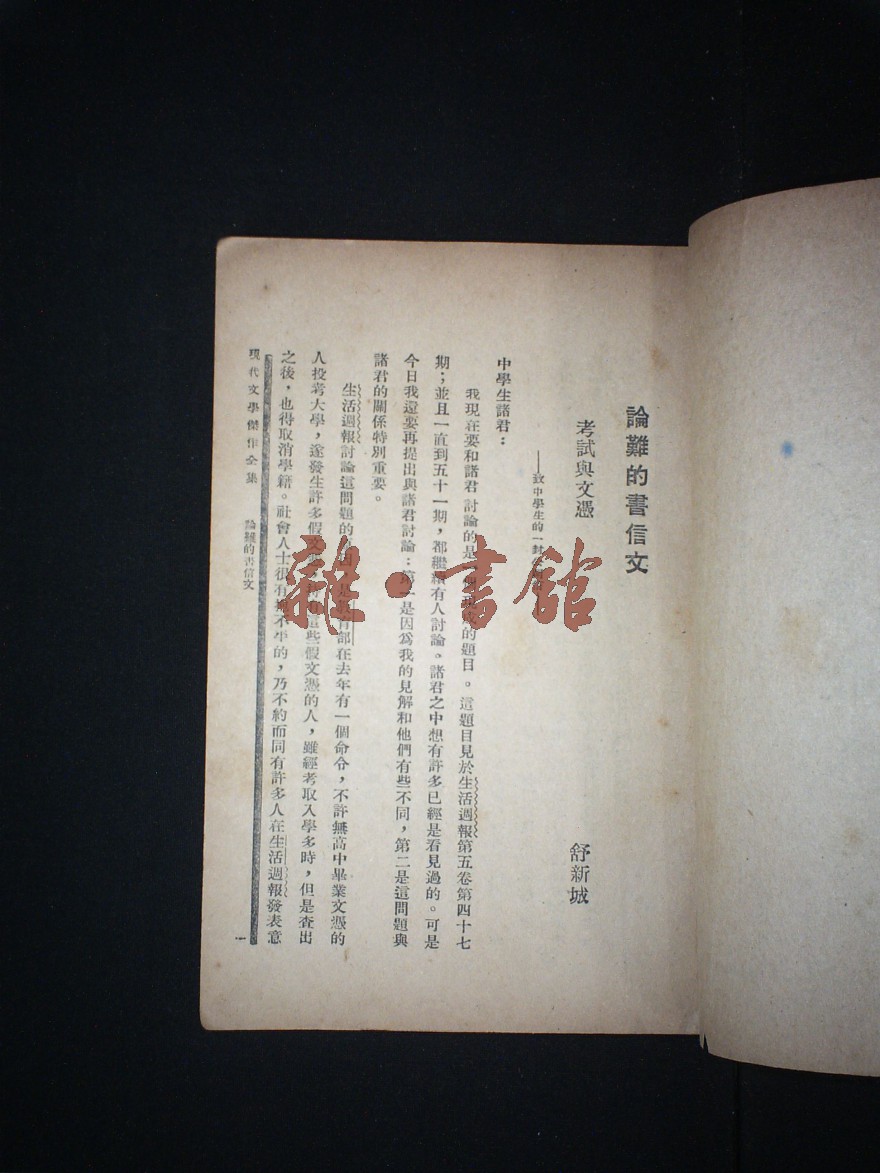 論難的書信文
考試與文憑
舒新城
——致中學生的一封
中學生諸君：
我現在要和諸君討論的是的題目。這題目見於生活週報第五卷第四十七
期；並且一直到五十一期，都繼續有人討論。諸君之中想有許多已經是看見過的。可是
今日我還要再提出與諸君討論：第一是因爲我的見解和他們有些不同，第二是這問題與
諸君的關係特別重要。
生活週報討論這問題的是教育部在去年有一個命令，不許無高中畢業文憑的
人投考大學，遂發生許多假文這些假文憑的人，雖經考取入學多時，但是查出
之後，也得取消學籍。社會人士很有不平的，乃不約而同有許多人在生活週報發表意
現代文學傑作全集 論難的書信文
一
雜·書館